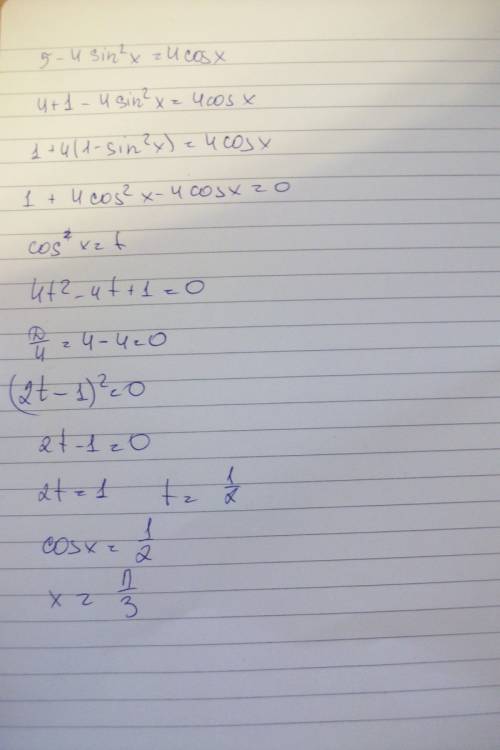 5 - 4 sin²x = 4cosx
4+1 - 4sin²x = 4cosx
1+4(1-sin²x) = 4cosx
1 + 4cos²x - 4cosx = 0
cos²x = t
4t² - 4t + 1 = 0
D/4 = 4 - 4 = 0
(2t - 1)² = 0
2t - 1 = 0
2t = 1 t = 1/2
cosx = 1/2
x = π/3